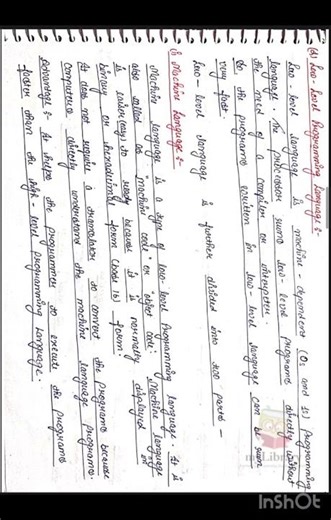 (b) Low-Level Programming Language :-
Low-level language is machine-dependent (0s and 1s) programming
language. The processor runs low-level programs directly without
the need of a compiler or interpreter.
So the programs written in low-level language can be run
very fast.
Low-level language is further divided into two parts -
i) Machine Language :-
Machine language is a type of low-level programming language. It is
also called as "machine code" or "object code". Machine language
is easier to read because it is normally displayed in
binary or hexadecimal form (base 16) form.
It does not require a translator to convert the programs because
computers directly understand the machine language programs.
Advantage :- It helps the programmer to execute the programs
faster than the high-level programming language.
my Library
InShOt